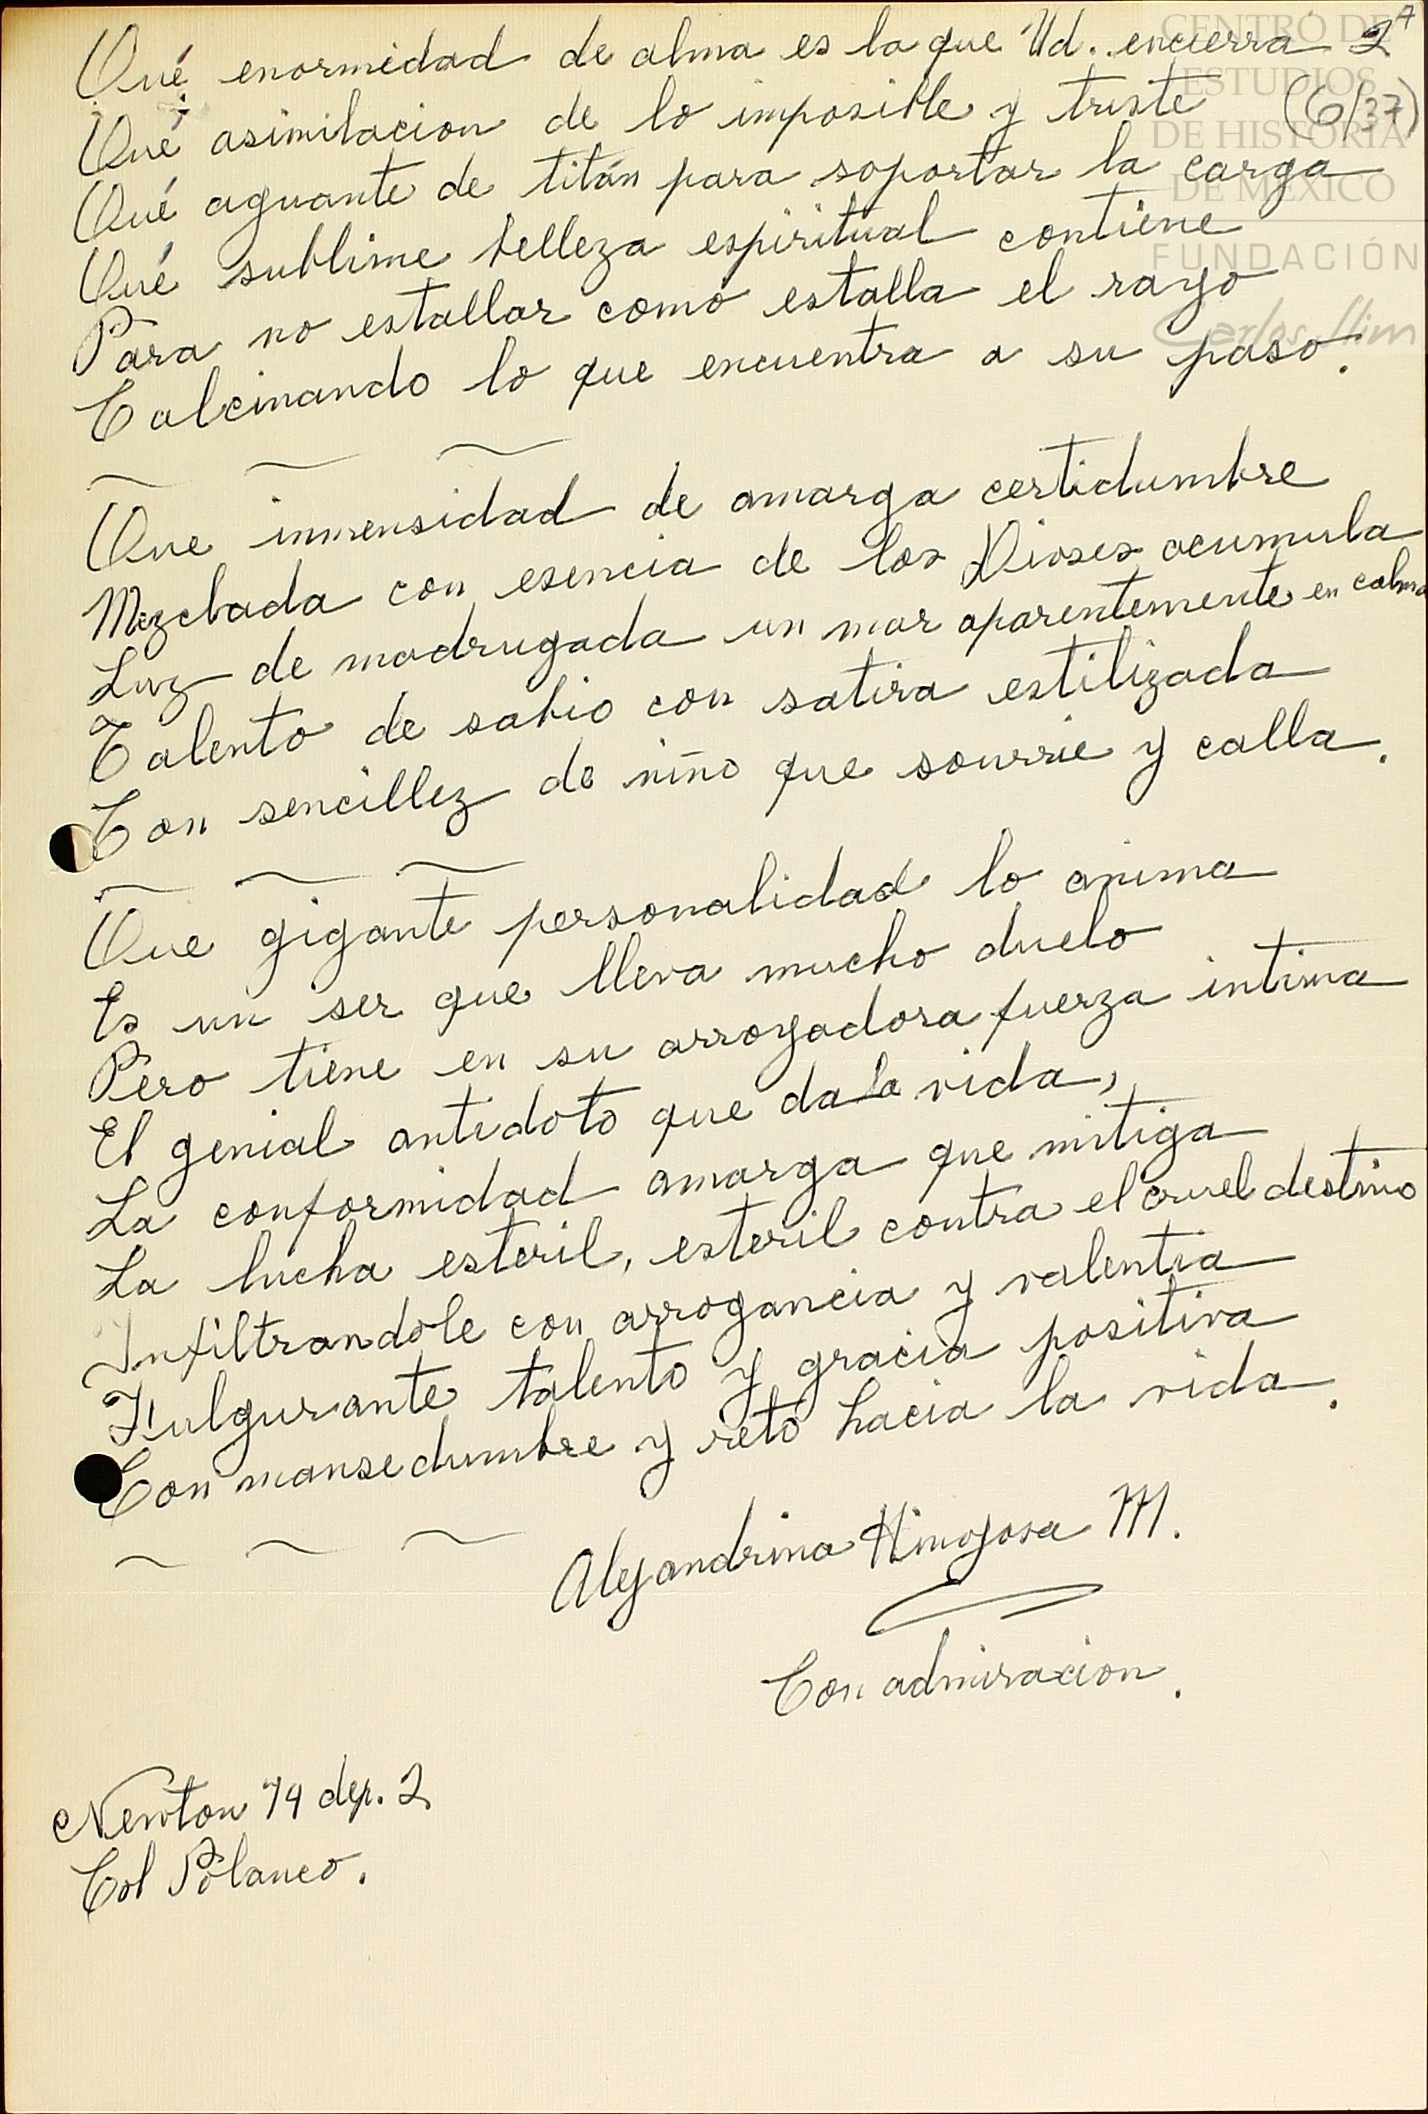 Qué enormidad de alma es la que Ud. encierra 2ª
Qué asimilacion de lo imposible y triste (6/37)
Qué aguante de titán para soportar la carga
Qué sublime belleza espiritual contiene
Para no estallar como estalla el rayo
Calcinando lo que encuentra a su paso.
Que inmensidad de amarga certidumbre
Mezclada con esencia de los Dioses acumula
Luz de madrugada un mar aparentemente en calma
Talento de sabio con satira estilizada
Con sencillez de niño que sourrie y calla.
Que gigante personalidad lo anima
Es un ser que lleva mucho duelo
Pero tiene en su arroyadora fuerza intima
El genial antidoto que da la vida,
La conformidad amarga que mitiga
La lucha esteril, esteril contra el cruel destino
Infiltrandole con arrogancia y valentia
Fulgurante talento y gracia positiva
Con mansedumbre y reto hacia la vida.
Alejandrina Hinojosa M.
Con admiracion.
Newton 74 dep. 2
Col Polanco.
CENTRO DE
ESTUDIOS
DE HISTORIA
DE MÉXICO
FUNDACIÓN
Carlos Slim